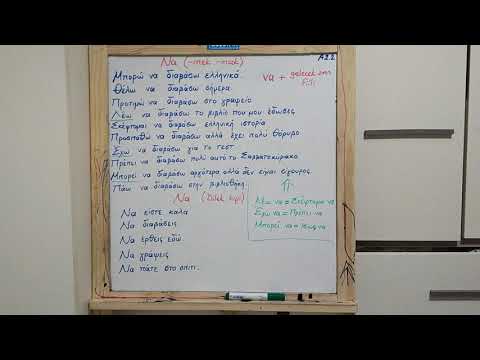 Να (-mek -mak)
A2.2
Μπορώ να διαβάσω ελληνικά.
Θέλω να διαβάσω σήμερα
Προτιμώ να διαβάσω στο γραφείο
Λέω να διαβάσω το βιβλίο που μου έδωσες
Σκέφτομαι να διαβάσω ελληνική ιστορία
Προσπαθώ να διαβάσω αλλά έχει πολύ θόρυβο
Έχω να διαβάσω για το τεστ
Πρέπει να διαβάσω πολύ αυτό το Σαββατοκύριακο
Μπορεί να διαβάσω αργότερα αλλά δεν είμαι σίγουρος
Πάω να διαβάσω στην βιβλιοθήκη.
να + gelecek zam. fiil
Λέω να = Σκέφτομαι να
Έχω να = Πρέπει να
Μπορεί να = Ίσως να
Να (Dilek kipi)
Να είστε καλά
Να διαβάσεις
Να έρθεις εδώ
Να γράψεις
Να πάτε στο σπίτι.